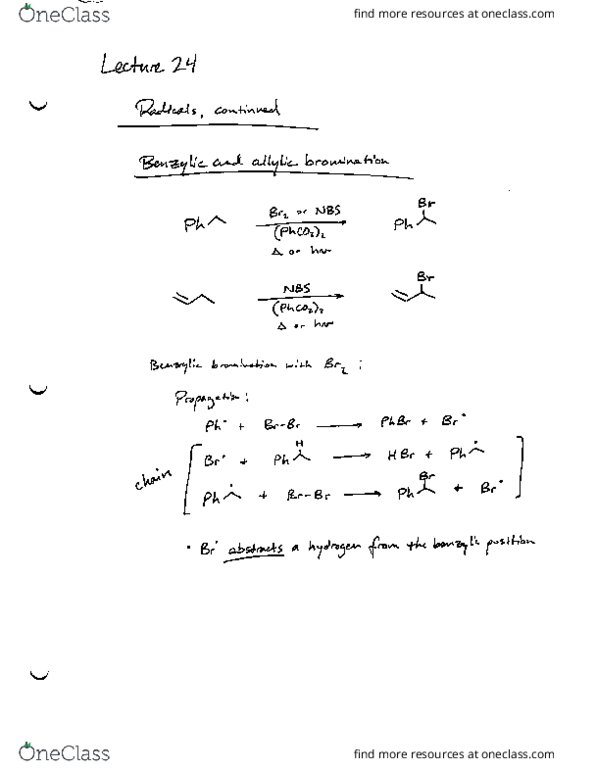 OneClass find more resources at oneclass.com
Lecture 24
Radicals, continued
Benzylic and allylic bromination
Ph Br₂ or NBS Br
(PhCO₂)₂ Ph
Δ or hν
NBS Br
(PhCO₂)₂
Δ or hν
Benzylic bromination with Br₂ :
Propagation :
Ph• + Br-Br ⟶ PhBr + Br•
H
chain Br• + Ph ⟶ HBr + Ph •
Br
Ph • + Br-Br ⟶ Ph + Br•
• Br• abstracts a hydrogen from the benzylic position
OneClass find more resources at oneclass.com